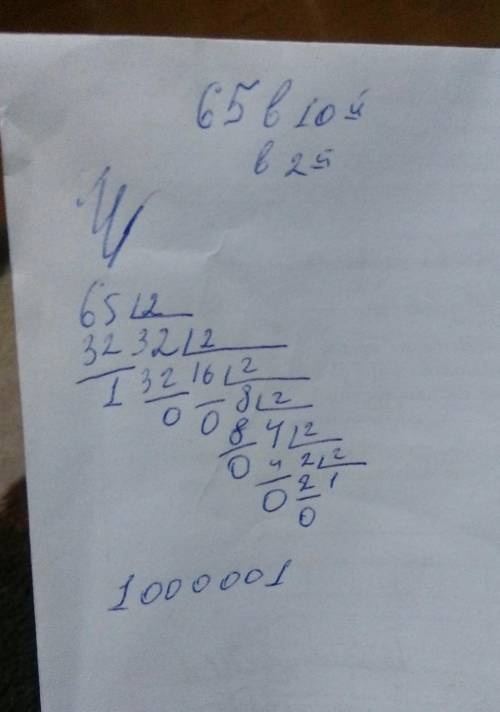 65 в 10й
в 2й
65 2
32 32 2
1 32 16 2
0 0 8 2
8 4 2
0 4 2 2
0 2 1
0
1000001